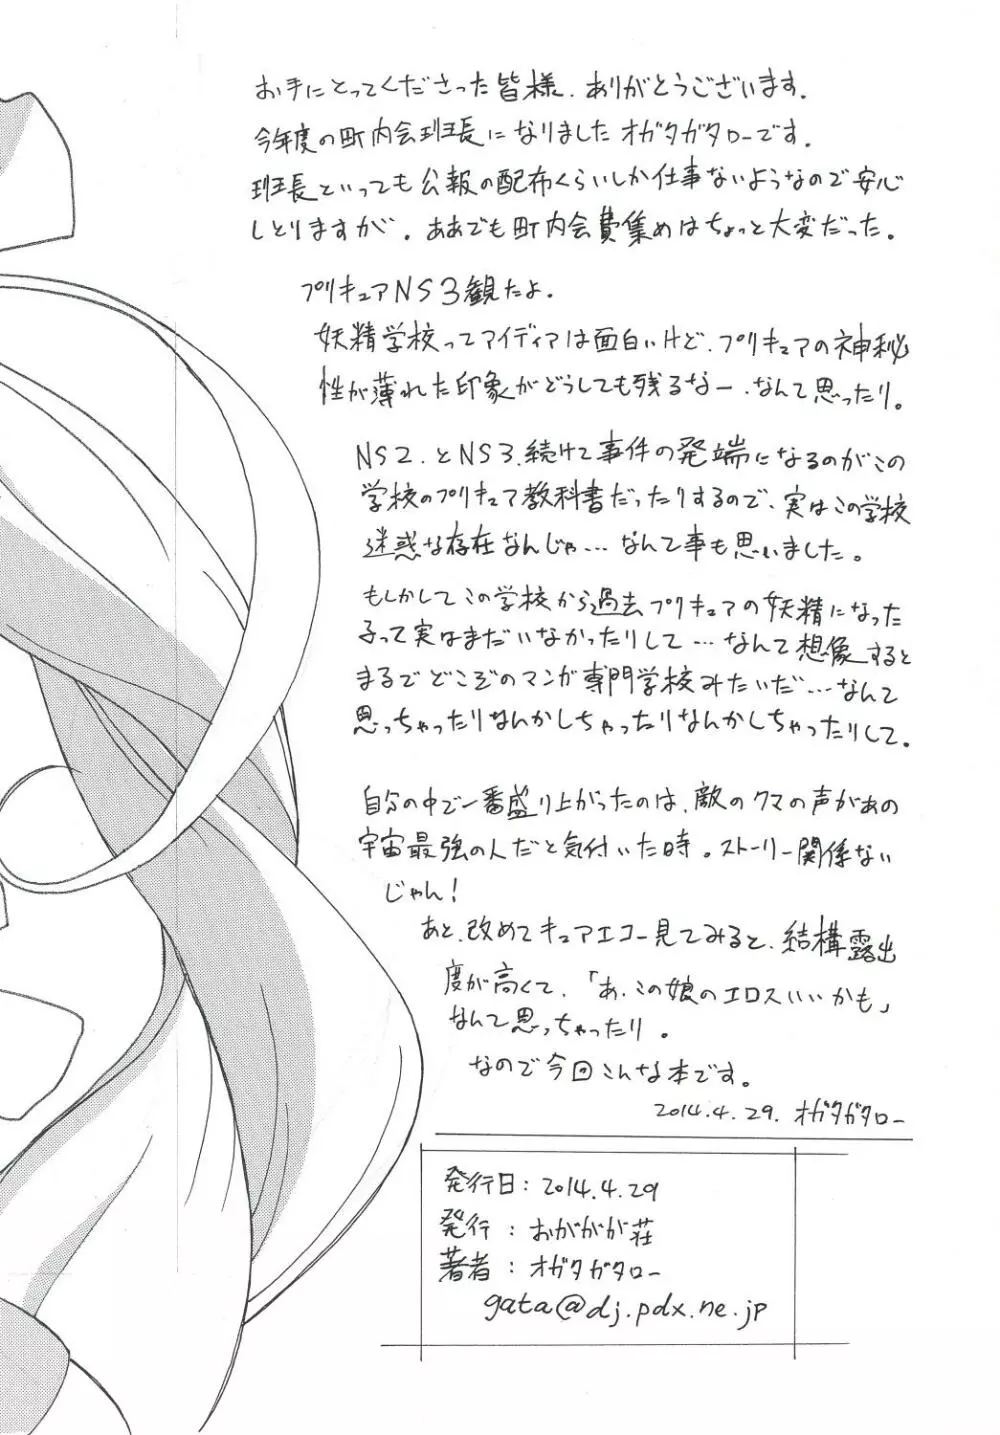 お手にとってくださった皆様、ありがとうございます。
今年度の町内会班長になりましたオガタガタローです。
班長といっても公報の配布くらいしか仕事ないようなので安心
しとりますが。ああでも町内会費集めはちょっと大変だった。
プリキュアNS3観たよ。
妖精学校ってアイディアは面白いけど、プリキュアの神秘
性が薄れた印象がどうしても残るなー、なんて思ったり。
NS2、とNS3、続けて事件の発端になるのがこの
学校のプリキュア教科書だったりするので、実はこの学校
迷惑な存在なんじゃ…なんて事も思いました。
もしかしてこの学校から過去プリキュアの妖精になった
子って実はまだいなかったりして…なんて想像すると
まるでどこぞのマンガ専門学校みたいだ…なんて
思っちゃったりなんかしちゃったりなんかしちゃったりして。
自分の中で一番盛り上がったのは、敵のクマの声があの
宇宙最強の人だと気付いた時。ストーリー関係ない
じゃん!
あと、改めてキュアエコー見てみると、結構露出
度が高くて、「あ、この娘のエロスいいかも」
なんて思っちゃったり。
なので今回こんな本です。
2014.4.29. オガタガタロー
発行日:2014.4.29
発行:おがががが荘
著者:オガタガタロー
gata@dj.pdx.ne.jp